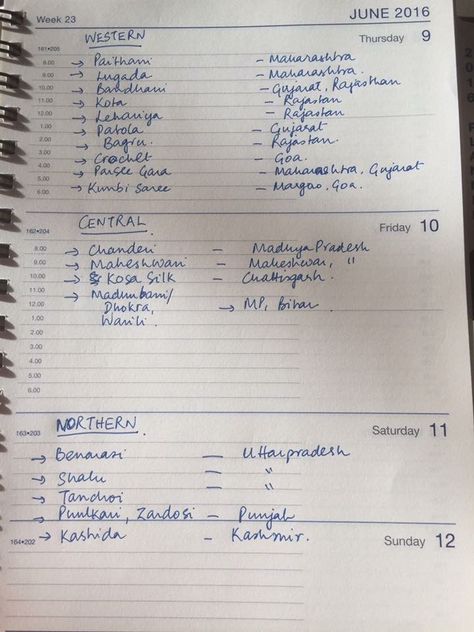 Week 23 JUNE 2016
WESTERN Thursday 9
161•205
8.00 → Paithani – Maharashtra
9.00 → Lugada – Maharashtra.
10.00 → Bandhani – Gujarat, Rajasthan
11.00 → Kota – Rajastan
12.00 → Lehariya – Rajastan
1.00 → Patola – Gujarat
2.00 → Bagru. – Rajastan.
3.00 → Crochet – Goa.
4.00 → Parsee Gara – Maharashtra, Gujarat
5.00 → Kunbi Saree – Margao, Goa.
6.00
CENTRAL Friday 10
162•204
8.00 → Chanderi – Madhya Pradesh
9.00 → Maheshwari – Maheshwar, "
10.00 → Kosa Silk – Chattisgarh.
11.00 → Madhubani/
12.00 Dhokra, → MP, Bihar
1.00 Warili.
2.00
3.00
4.00
5.00
6.00
NORTHERN Saturday 11
163•203
→ Benarasi – Uttarpradesh
→ Shalu – "
→ Tanchoi – "
→ Phulkari, Zardosi – Punjab
164•202 → Kashida – Kashmir. Sunday 12